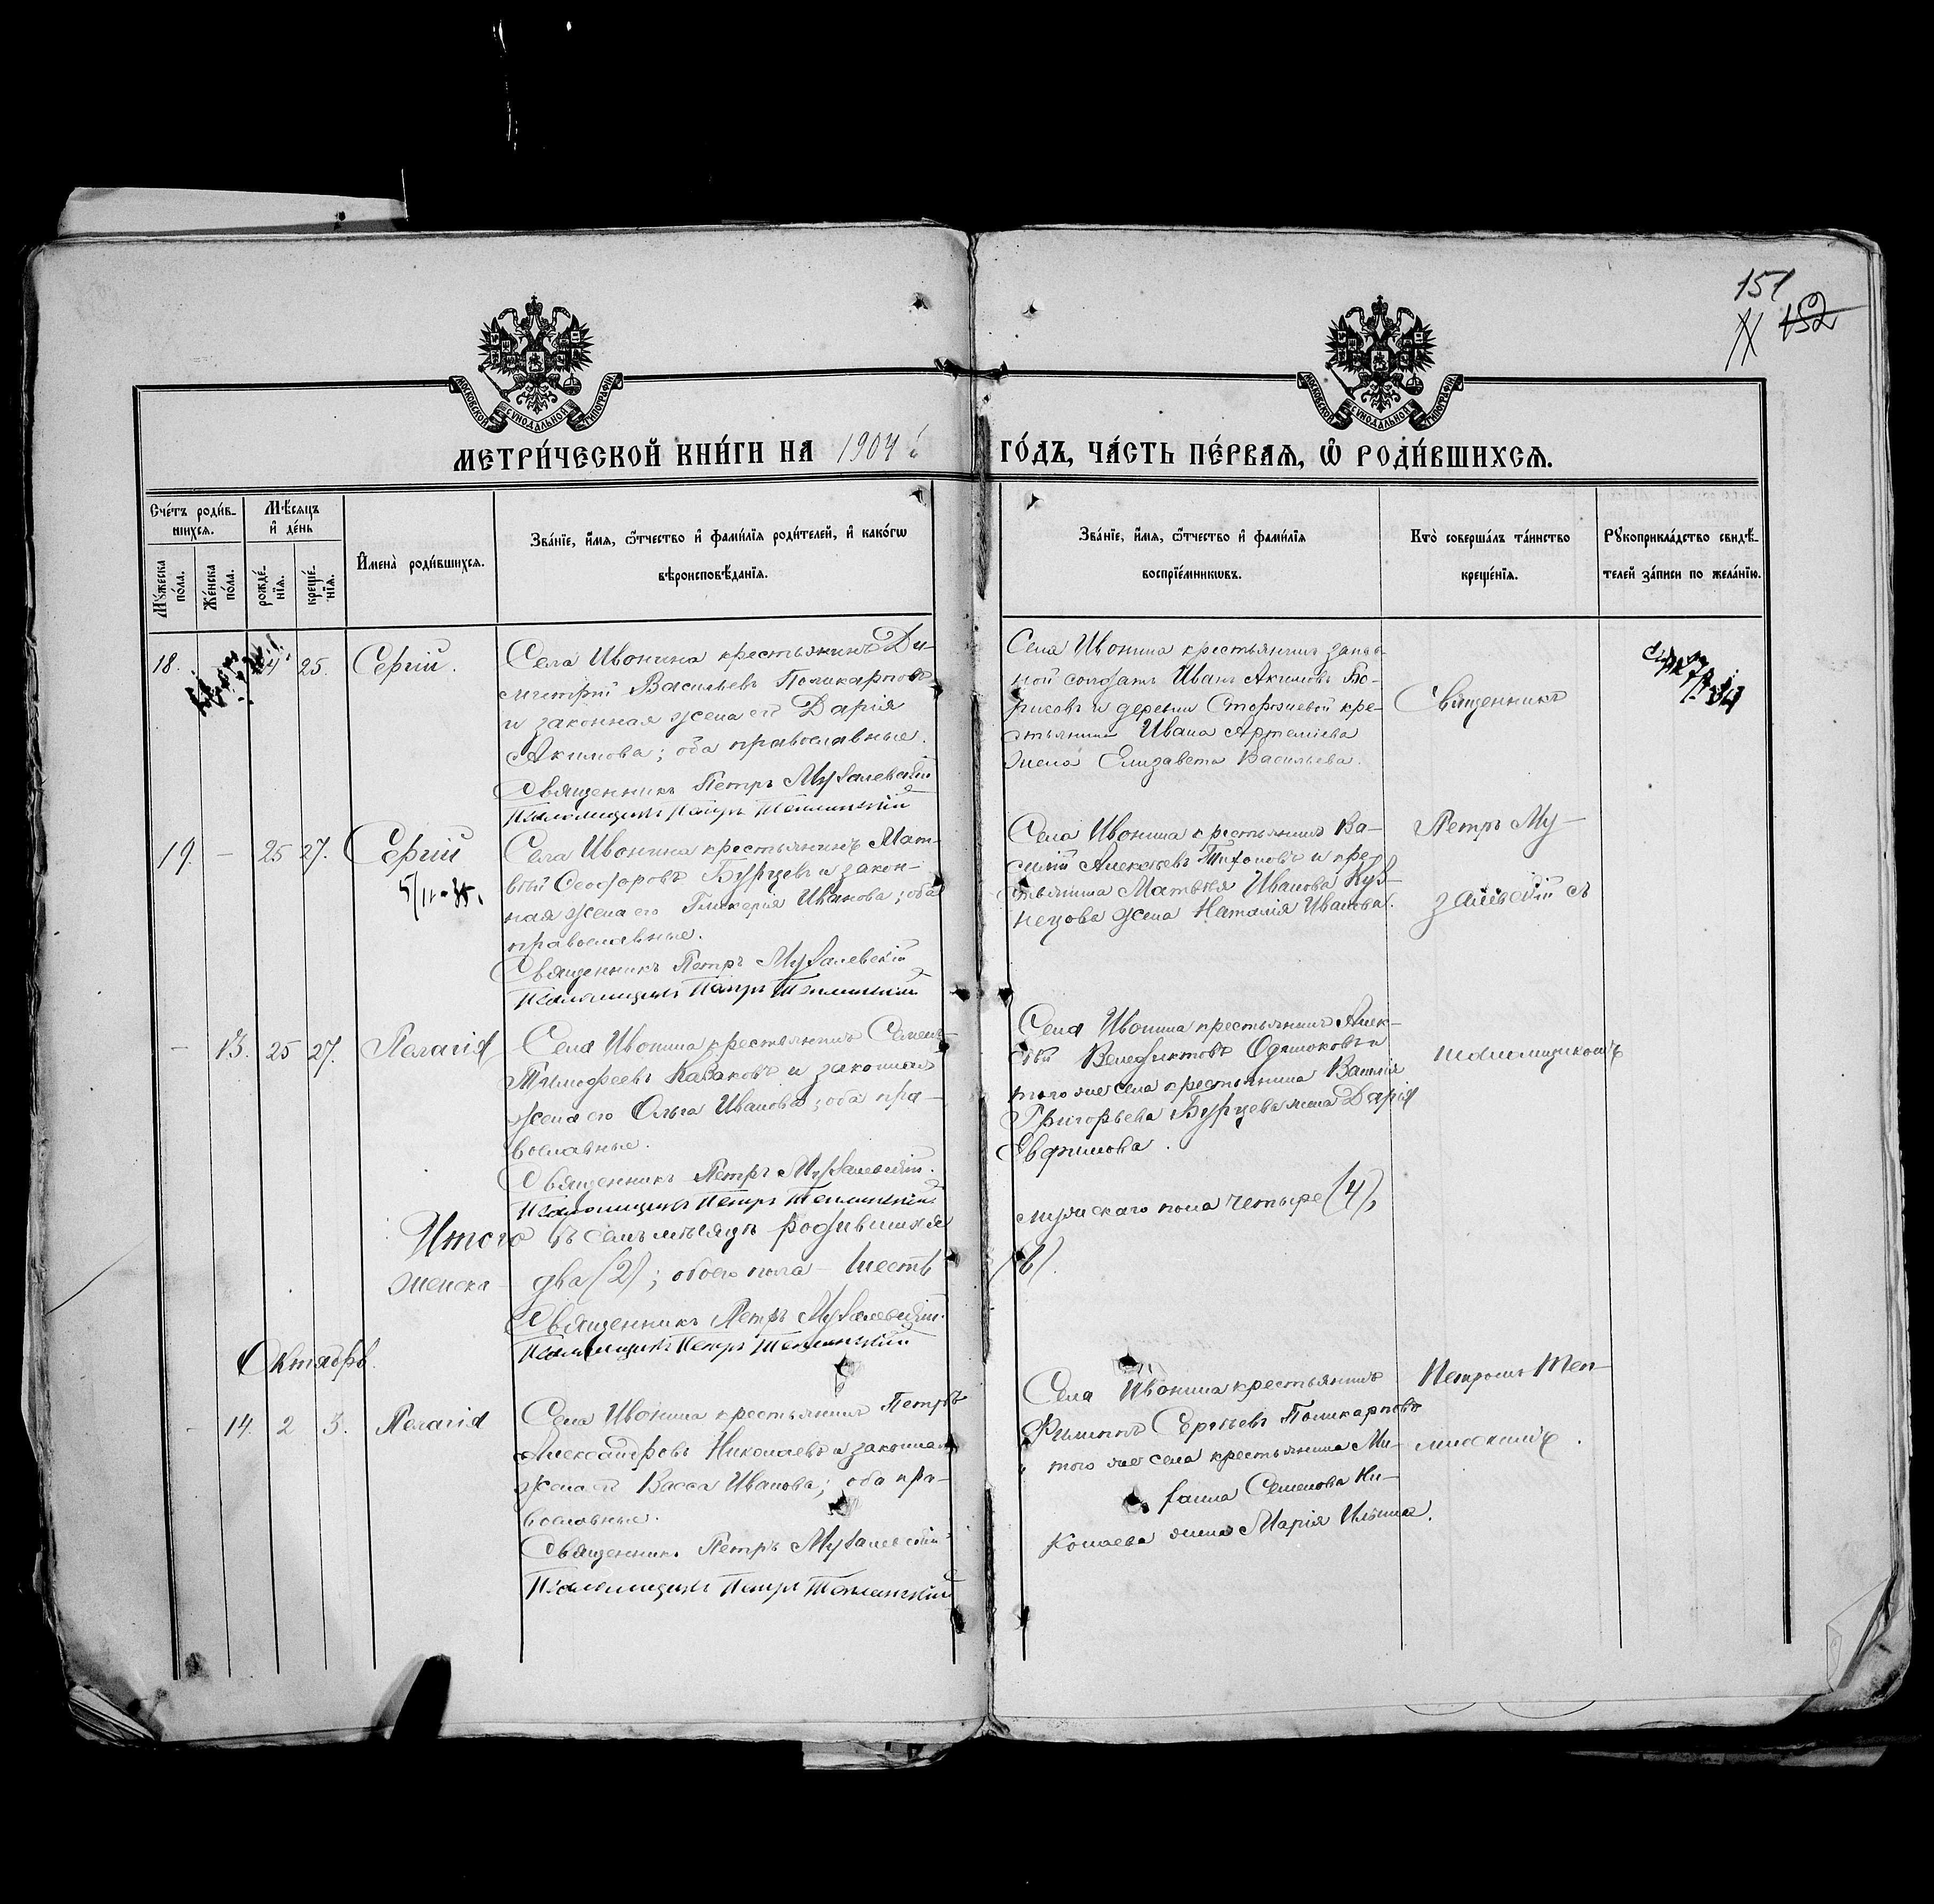 151
152
МОСКОВСКОЙ СУНОДАЛЬНОЙ ТИПОГРАФІИ
МОСКОВСКОЙ СУНОДАЛЬНОЙ ТИПОГРАФІИ
МЕТРИ́ЧЕСКОЙ КНИ́ГИ НА 1904
ГО́ДЪ, ЧА́СТЬ ПЕ́РВАѦ, Ѡ҆ РОДИ́ВШИХСѦ.
Сче́тъ роди́в-
шихсѧ.
Мꙋ́жеска по́ла.
Же́нска по́ла.
Мѣ́сѧцъ
и҆ де́нь
рожде́-
нїѧ.
креще́-
нїѧ.
И҆мена̀ роди́вшихсѧ.
Зва́нїе, и҆́мѧ, ѻ҆́тчество и҆ фами́лїѧ роди́телей, и҆ како́гѡ
вѣроисповѣ́данїѧ.
Зва́нїе, и҆́мѧ, ѻ҆́тчество и҆ фами́лїѧ
воспрїе́мникѡвъ.
Кто̀ соверша́лъ та́инство
креще́нїѧ.
Рꙋкоприкла́дство свидѣ́-
телей за́писи по жела́нїю.
18.
25.
Сергій.
Села Ивонина крестьянинъ Ди-
митрій Васильевъ Поликарповъ
и законная жена его Дарія
Акимова; оба православные.
Священникъ Петръ Музалевскій
Псаломщикъ Петръ Теплинскій
Села Ивонина крестьянинъ запас-
ной солдатъ Иванъ Акимовъ Бо-
рисовъ и деревни Сторожевой кре-
стьянина Ивана Артеміева
жена Елизавета Васильева.
Священникъ
19. – 25 27. Сергій
Села Ивонина крестьянинъ Мат-
вѣй Ѳеодоровъ Бурцевъ и закон-
ная жена его Гликерія Иванова; оба
православные.
Священникъ Петръ Музалевскій
Псаломщикъ Петръ Теплинскій
Села Ивонина крестьянинъ Ва-
силій Алексѣевъ Тихоновъ и кре-
стьянина Матвѣя Иванова Куз-
нецова жена Наталія Иванова.
Петръ Му-
залевскій съ
– 13. 25 27. Пелагія
Села Ивонина крестьянинъ Семенъ
Тимофеевъ Казаковъ и законная
жена его Ольга Иванова; оба пра-
вославные.
Священникъ Петръ Музалевскій.
Псаломщикъ Петръ Теплинскій
Села Ивонина крестьянинъ Алек-
сѣй Венедиктовъ Одиноковъ и
того же села крестьянина Василія
Григорьева Бурцева жена Дарія
Евфимова.
псаломщикомъ
Итого въ семъ мѣсяцѣ родившихся
мужскаго пола четыре (4),
женска – два (2); обоего пола – шесть
(6).
Священникъ Петръ Музалевскій.
Псаломщикъ Петръ Теплинскій
Октябрь.
- 14. 2 3. Пелагія
Села Ивонина крестьянинъ Петръ
Александровъ Николаевъ и законная
жена его Васса Иванова; оба пра-
вославные.
Священникъ Петръ Музалевскій
Псаломщикъ Петръ Теплинскій
Села Ивонина крестьянинъ
Филиппъ Сергѣевъ Поликарповъ
того же села крестьянина Ми-
хаила Семенова Ни-
колаева жена Марія Ильина.
Петромъ Теп-
линскимъ.